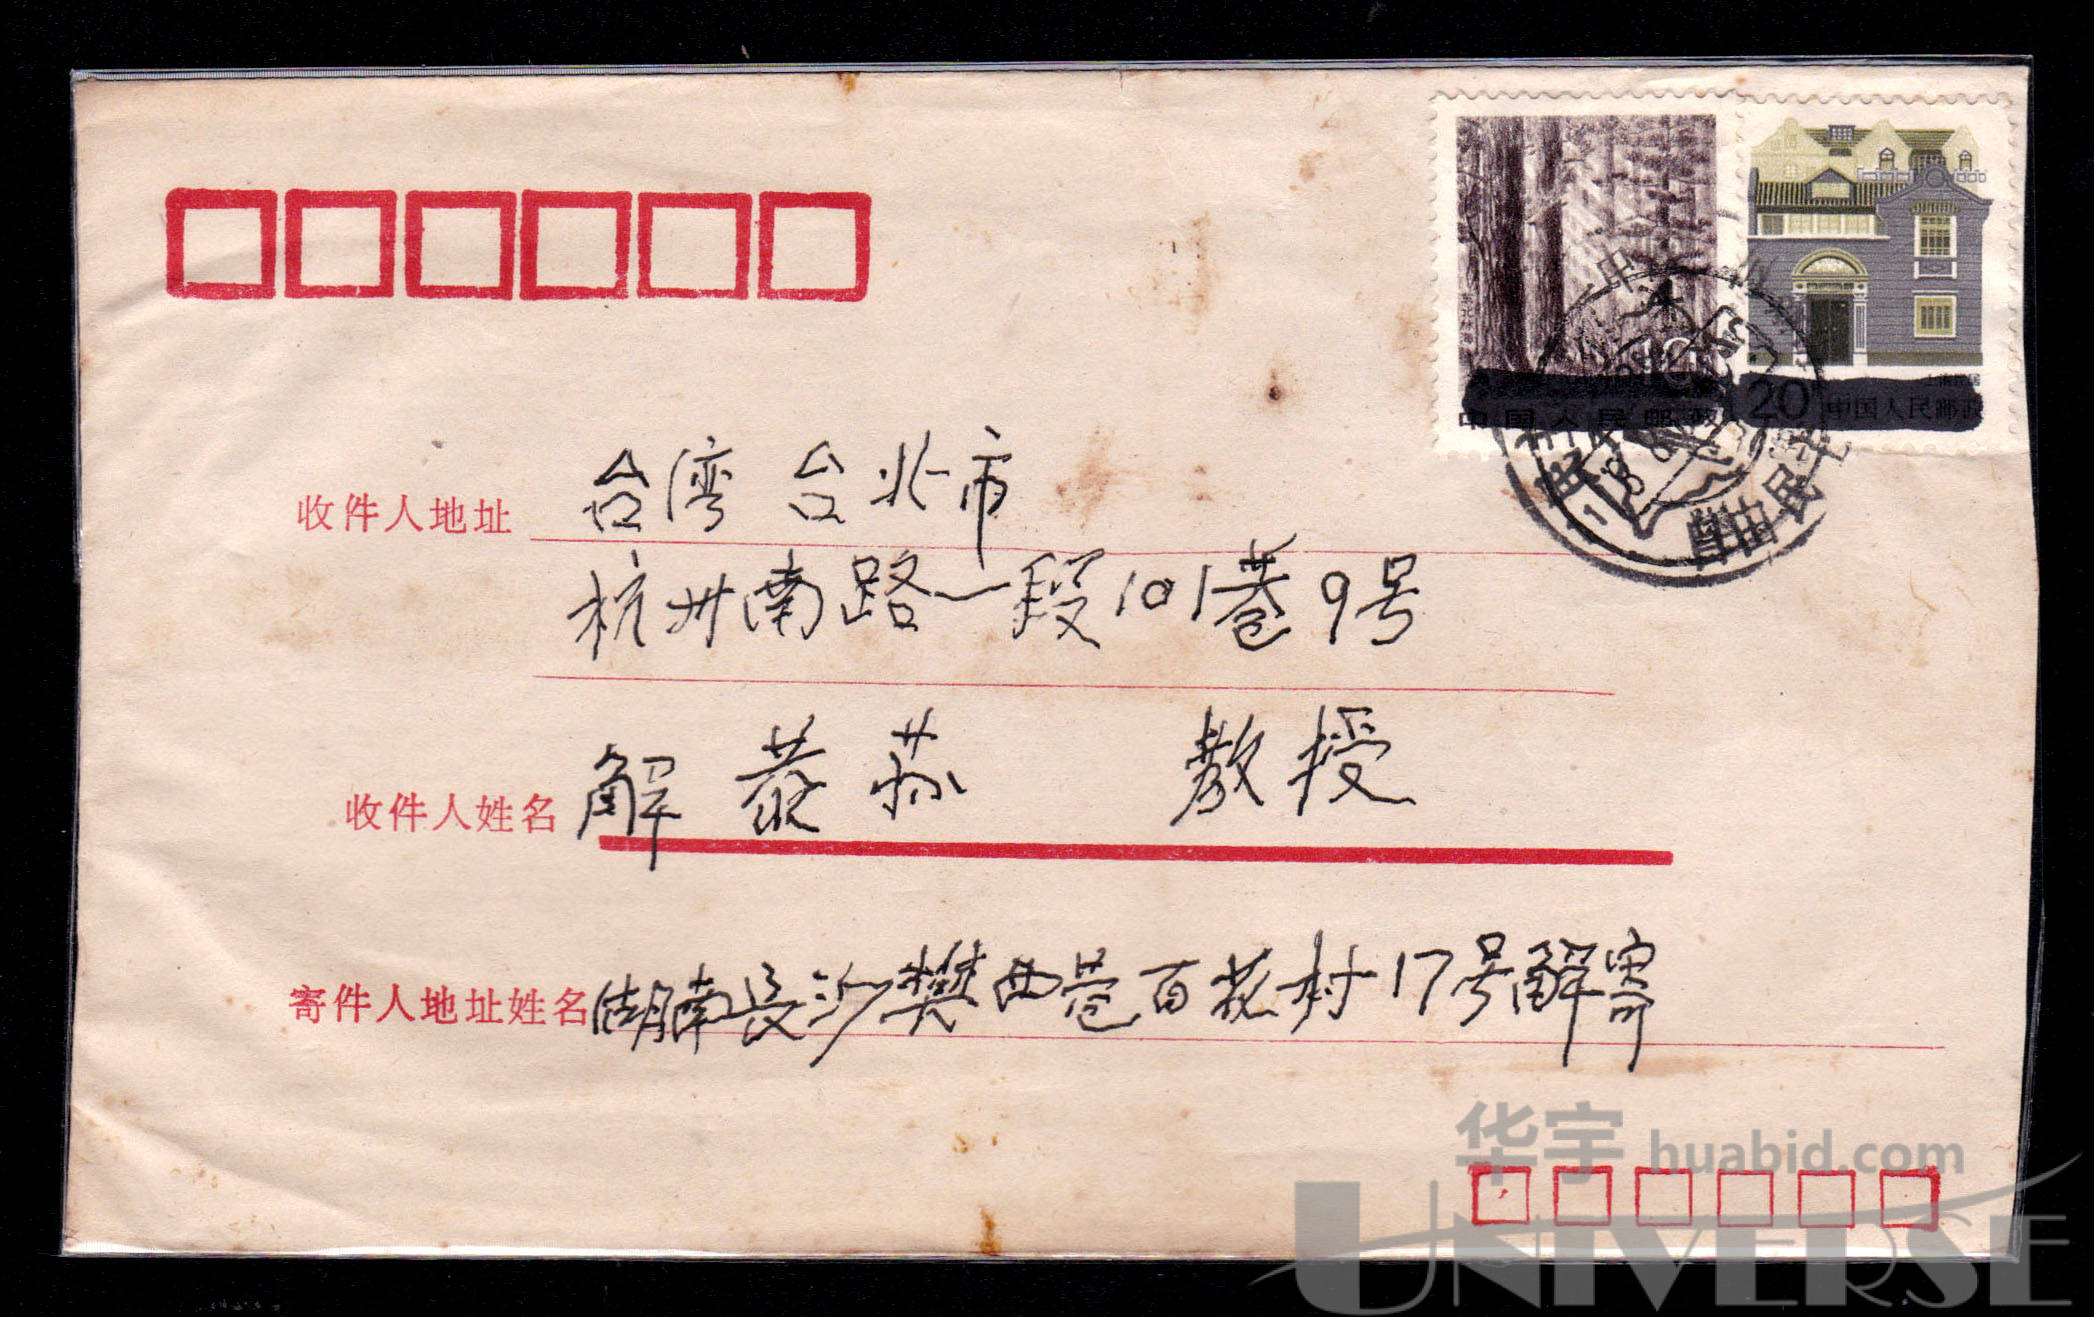 10
中国人民邮政
20
上海民居
中国人民邮政
收件人地址
台湾 台北市
杭州南路一段101巷9号
收件人姓名
解 教授
寄件人地址姓名
湖南长沙樊西巷百花村17号解寄
华宇 huabid.com
UNIVERSE